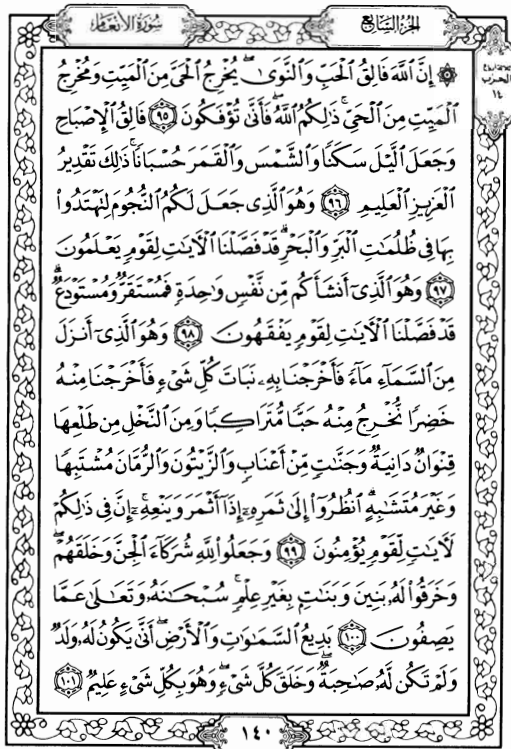 سُورَةُ الأَنْعَامِ
الجُزْءُ السَّابِعُ
الحزب
١٤
۞ إِنَّ ٱللَّهَ فَالِقُ ٱلْحَبِّ وَٱلنَّوَىٰ ۖ يُخْرِجُ ٱلْحَىَّ مِنَ ٱلْمَيِّتِ وَمُخْرِجُ
ٱلْمَيِّتِ مِنَ ٱلْحَىِّ ۚ ذَٰلِكُمُ ٱللَّهُ ۖ فَأَنَّىٰ تُؤْفَكُونَ ٩٥ فَالِقُ ٱلْإِصْبَاحِ
وَجَعَلَ ٱلَّيْلَ سَكَنًا وَٱلشَّمْسَ وَٱلْقَمَرَ حُسْبَانًا ۚ ذَٰلِكَ تَقْدِيرُ
ٱلْعَزِيزِ ٱلْعَلِيمِ ٩٦ وَهُوَ ٱلَّذِى جَعَلَ لَكُمُ ٱلنُّجُومَ لِتَهْتَدُوا۟
بِهَا فِى ظُلُمَٰتِ ٱلْبَرِّ وَٱلْبَحْرِ ۗ قَدْ فَصَّلْنَا ٱلْءَايَٰتِ لِقَوْمٍ يَعْلَمُونَ
٩٧ وَهُوَ ٱلَّذِىٓ أَنشَأَكُم مِّن نَّفْسٍ وَٰحِدَةٍ فَمُسْتَقَرٌّ وَمُسْتَوْدَعٌ ۗ
قَدْ فَصَّلْنَا ٱلْءَايَٰتِ لِقَوْمٍ يَفْقَهُونَ ٩٨ وَهُوَ ٱلَّذِىٓ أَنزَلَ
مِنَ ٱلسَّمَآءِ مَآءً فَأَخْرَجْنَا بِهِۦ نَبَاتَ كُلِّ شَىْءٍ فَأَخْرَجْنَا مِنْهُ
خَضِرًا نُّخْرِجُ مِنْهُ حَبًّا مُّتَرَاكِبًا وَمِنَ ٱلنَّخْلِ مِن طَلْعِهَا
قِنْوَانٌ دَانِيَةٌ وَجَنَّٰتٍ مِّنْ أَعْنَابٍ وَٱلزَّيْتُونَ وَٱلرُّمَّانَ مُشْتَبِهًا
وَغَيْرَ مُتَشَٰبِهٍ ۗ ٱنظُرُوٓا۟ إِلَىٰ ثَمَرِهِۦٓ إِذَآ أَثْمَرَ وَيَنْعِهِۦٓ ۚ إِنَّ فِى ذَٰلِكُمْ
لَءَايَٰتٍ لِّقَوْمٍ يُؤْمِنُونَ ٩٩ وَجَعَلُوا۟ لِلَّهِ شُرَكَآءَ ٱلْجِنَّ وَخَلَقَهُمْ ۖ
وَخَرَقُوا۟ لَهُۥ بَنِينَ وَبَنَٰتٍۭ بِغَيْرِ عِلْمٍ ۚ سُبْحَٰنَهُۥ وَتَعَٰلَىٰ عَمَّا
يَصِفُونَ ١٠٠ بَدِيعُ ٱلسَّمَٰوَٰتِ وَٱلْأَرْضِ ۖ أَنَّىٰ يَكُونُ لَهُۥ وَلَدٌ
وَلَمْ تَكُن لَّهُۥ صَٰحِبَةٌ ۖ وَخَلَقَ كُلَّ شَىْءٍ ۖ وَهُوَ بِكُلِّ شَىْءٍ عَلِيمٌ ١٠١
١٤٠